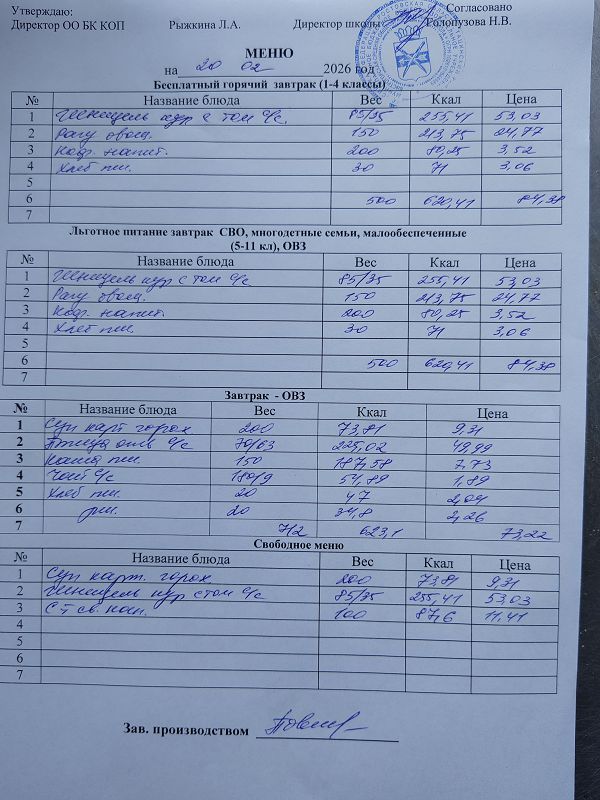 Утверждаю: Согласовано
Директор ОО БК КОП Рыжкина Л.А. Директор школы Голопузова Н.В.
МЕНЮ
на 20 02 2026 год
Бесплатный горячий завтрак (1-4 классы)
№ Название блюда Вес Ккал Цена
1 Шницель кур с том с/с. 85/35 255,41 53,03
2 Рагу овощ. 150 213,75 24,77
3 Коф. напит. 200 80,25 3,52
4 Хлеб пш. 30 71 3,06
5
6 500 620,41 84,38
7
Льготное питание завтрак СВО, многодетные семьи, малообеспеченные
(5-11 кл), ОВЗ
№ Название блюда Вес Ккал Цена
1 Шницель кур с том с/с 85/35 255,41 53,03
2 Рагу овощ. 150 213,75 24,77
3 Коф. напит. 200 80,25 3,52
4 Хлеб пш. 30 71 3,06
5
6 500 620,41 84,38
7
Завтрак - ОВЗ
№ Название блюда Вес Ккал Цена
1 Суп карт горох 200 73,81 9,31
2 с/с 70/63 225,02 49,99
3 Каша пш. 150 187,58 7,73
4 Чай с/с 180/9 54,89 1,89
5 Хлеб пш. 20 47 2,04
6 рж. 20 34,8 2,26
7 712 623,1 73,22
Свободное меню
№ Название блюда Вес Ккал Цена
1 Суп карт. горох 200 73,81 9,31
2 Шницель кур с том с/с 85/35 255,41 53,03
3 С-т св. кап. 100 87,6 11,41
4
5
6
7
Зав. производством